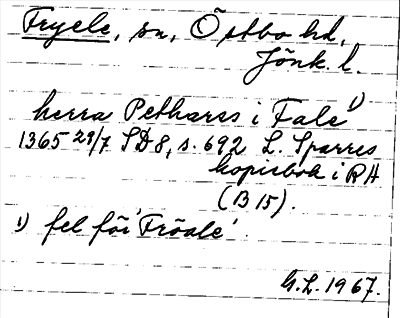 Fryele, sn, Östbo hd,
Jönk. l.
herra Petharss i Fale 1)
1365 29/7 SD 8, s. 692 L. Sparres
kopiebok i RH
(B 15).
1) fel för 'Fröale'.
G.L. 1967.